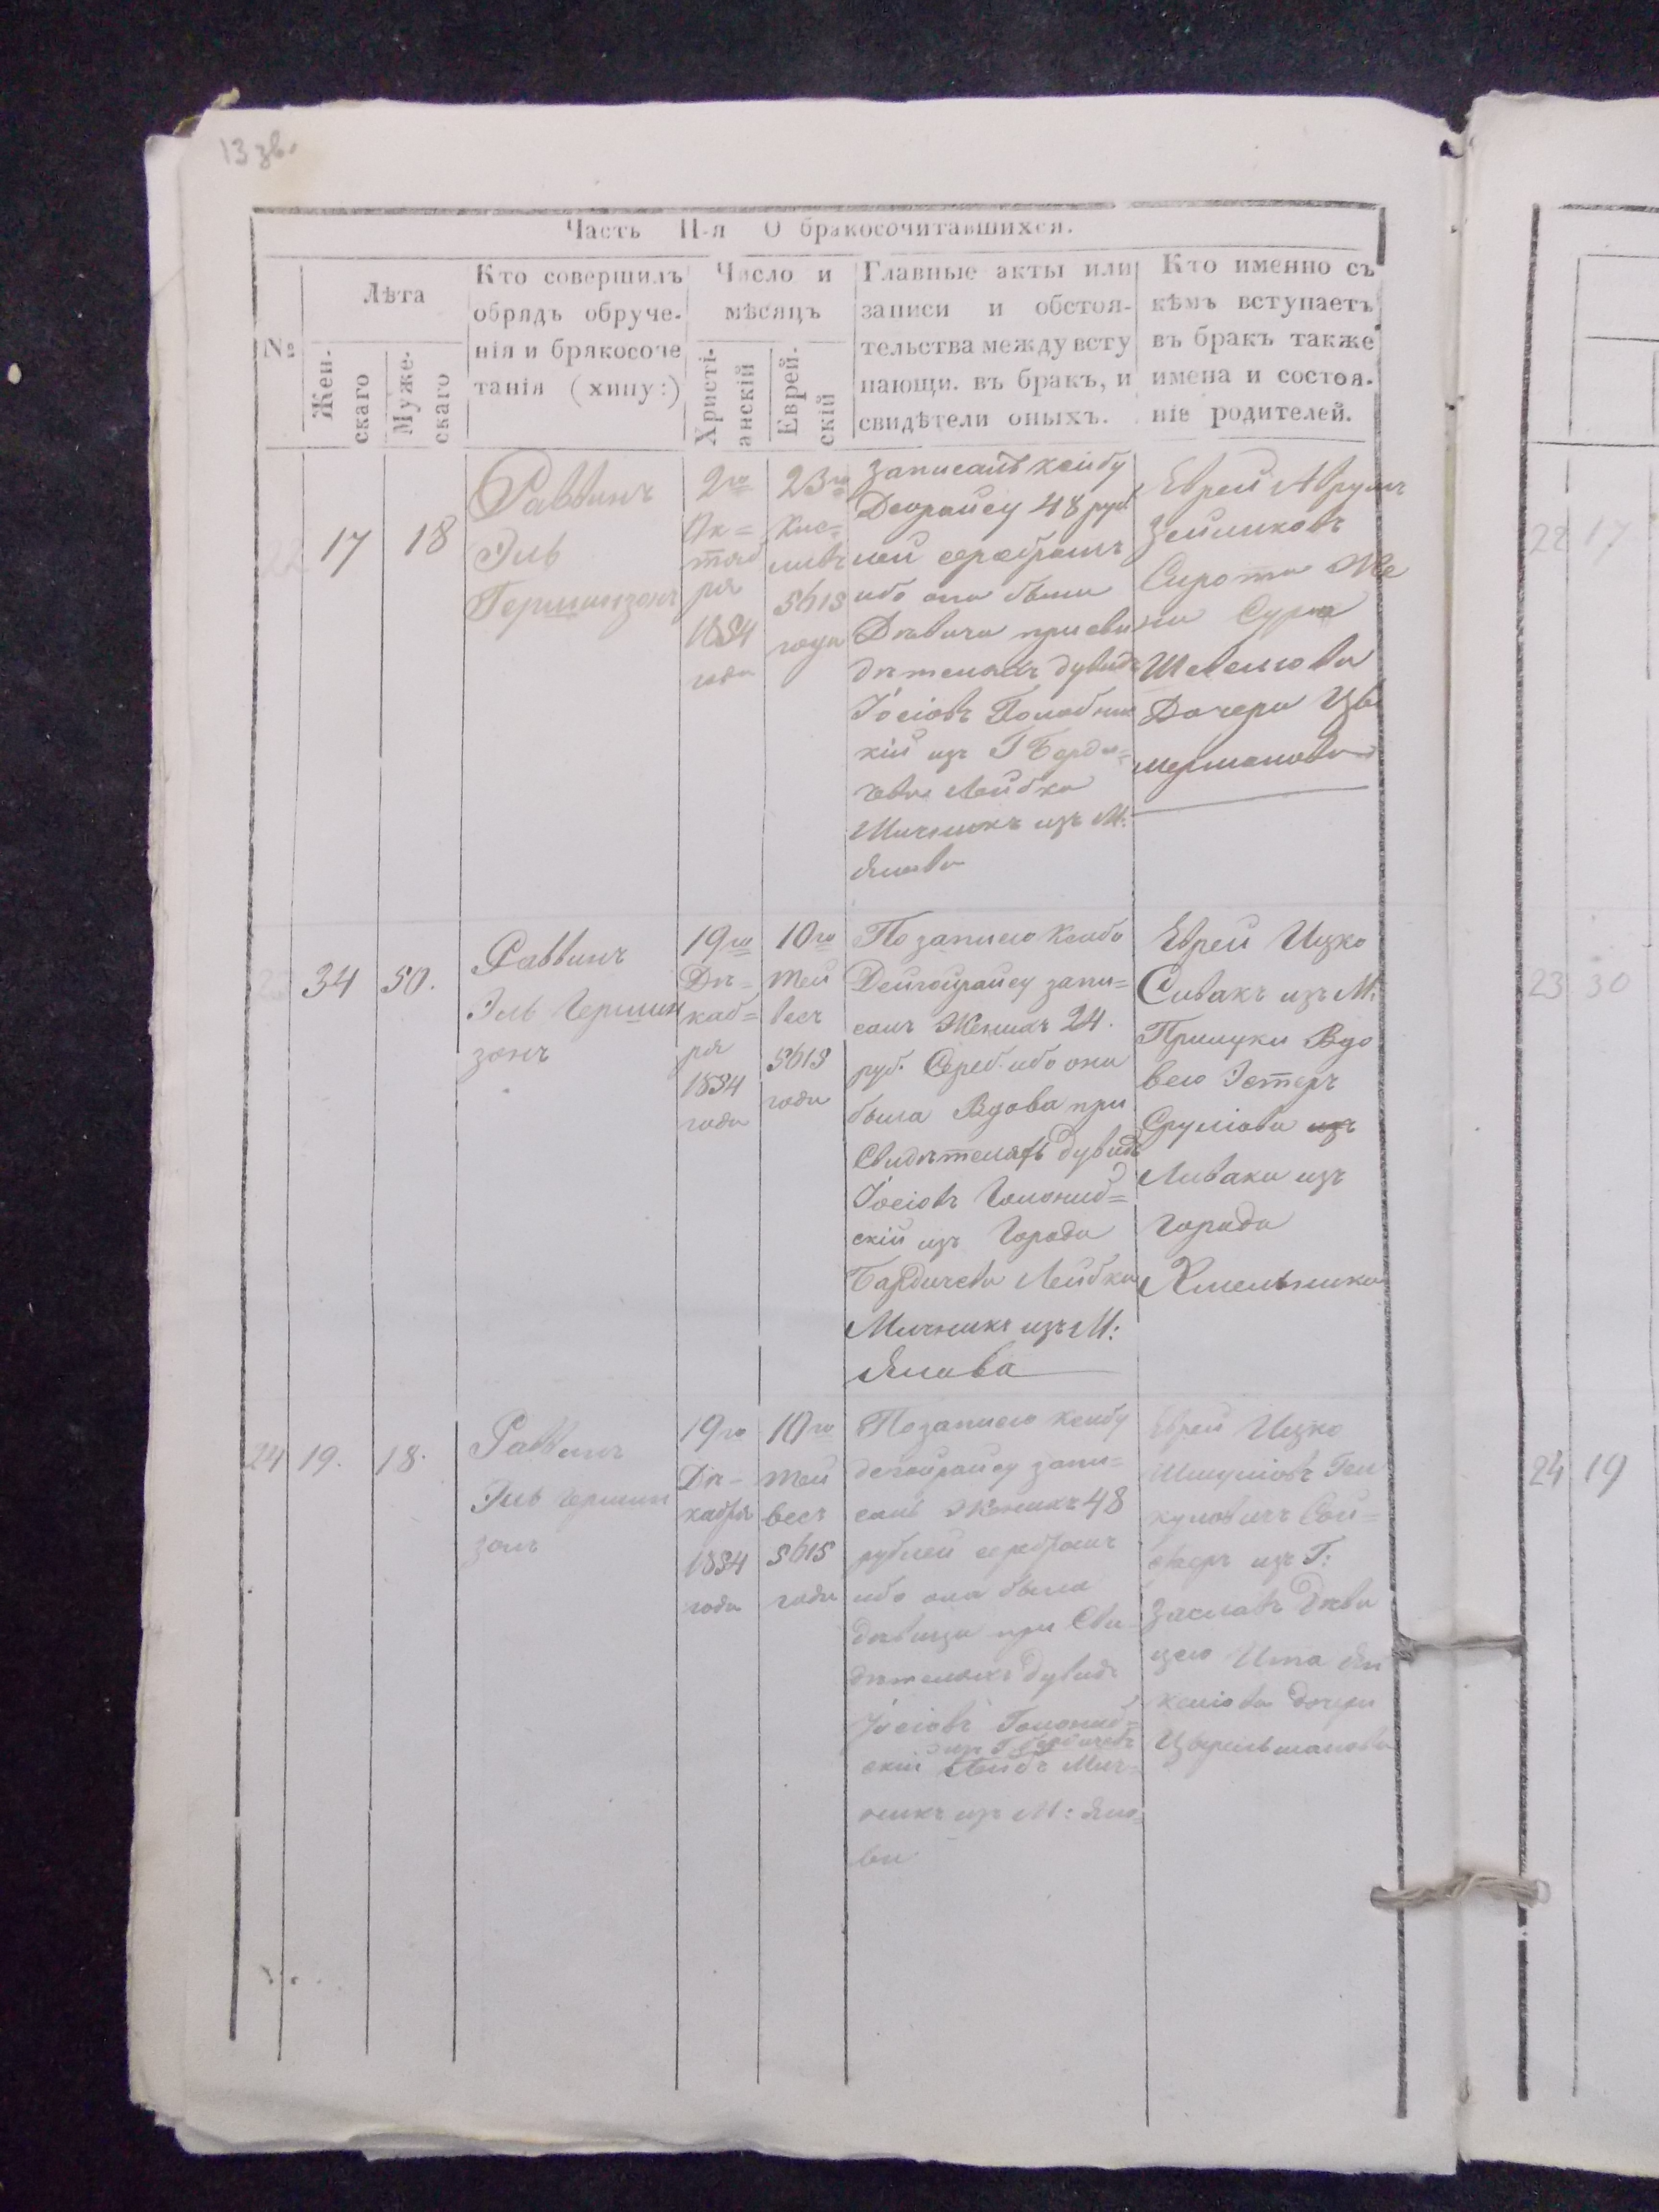 13 зв.
Часть II-я О бракосочитавшихся.
№
Лѣта
Жен-
скаго
Муже-
скаго
Кто совершилъ
обрядъ обруче-
нія и брякосоче
танія (хипу:)
Число и
мѣсяцъ
Христі-
анскій
Еврей-
скій
Главные акты или
записи и обстоя-
тельства между всту
пающи. въ бракъ, и
свидѣтели оныхъ.
Кто именно съ
кѣмъ вступаетъ
въ бракъ также
имена и состоя-
ніе родителей.
22
17
18
Раввинъ
Эль
Гершинзонъ
2го
Ок=
тяб
ря
1854
года
23го
Кис=
5615
года
48 руб
лей серебромъ
ибо она была
Дѣвица при сви
дѣтеляхъ дувидъ
Іосіовъ
кій изъ Г Берди=
чева Лейбка
Мичникъ изъ М:
Янова
Еврей Аврумъ
Зейликовъ
Сирота Же
на Сура
Дочери Ци
мермановы
34
50.
Раввинъ
Эль Гершин
зонъ
19го
Дѣ=
каб=
ря
1854
года
10го
Тей
весъ
5615
года
По записю Ксибо
запи=
салъ Женихъ 24.
руб. Сереб. ибо она
была Вдова при
Свидѣтеляхъ Дувидъ
Іосіовъ
скій изъ Города
Бардичева Лейбка
Мичникъ изъ М:
Янова
Еврей Ицко
Сивакъ изъ М:
Прилуки Вдо
вею Эстеръ
Срулiова изъ
Ливаки изъ
города
Хмельника
24
19.
18.
Раввинъ
Эль Гершин
зонъ
19го
Дѣ-
кабря
1854
года
10го
Тей
весъ
5615
года
По записю Ксибу
запи=
салъ Женихъ 48
рублей серебромъ
ибо она была
дѣвица при Сви
дѣтеляхъ Дувидъ
Іосіовъ
изъ Г Бердичевъ
скій Лейбъ Мич=
никъ изъ М: Яно
ва
Еврей Ицко
изъ Г:
Заславъ Дѣви
цею Ита Ян
келіова дочери
22 17
23 30
24 19